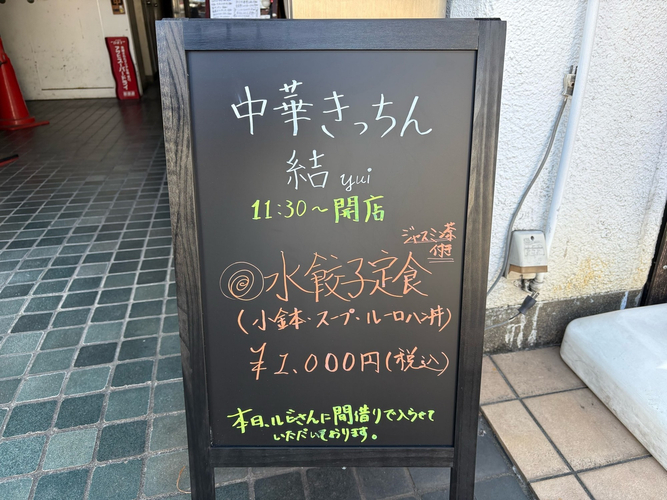 中華きっちん
結 yui
11:30～開店
ジャスミン茶
付き
◎水餃子定食
(小鉢・スープ・ルーロハン丼)
￥1,000円(税込)
本日、ルビさんに間借りで入らせて
いただいております。